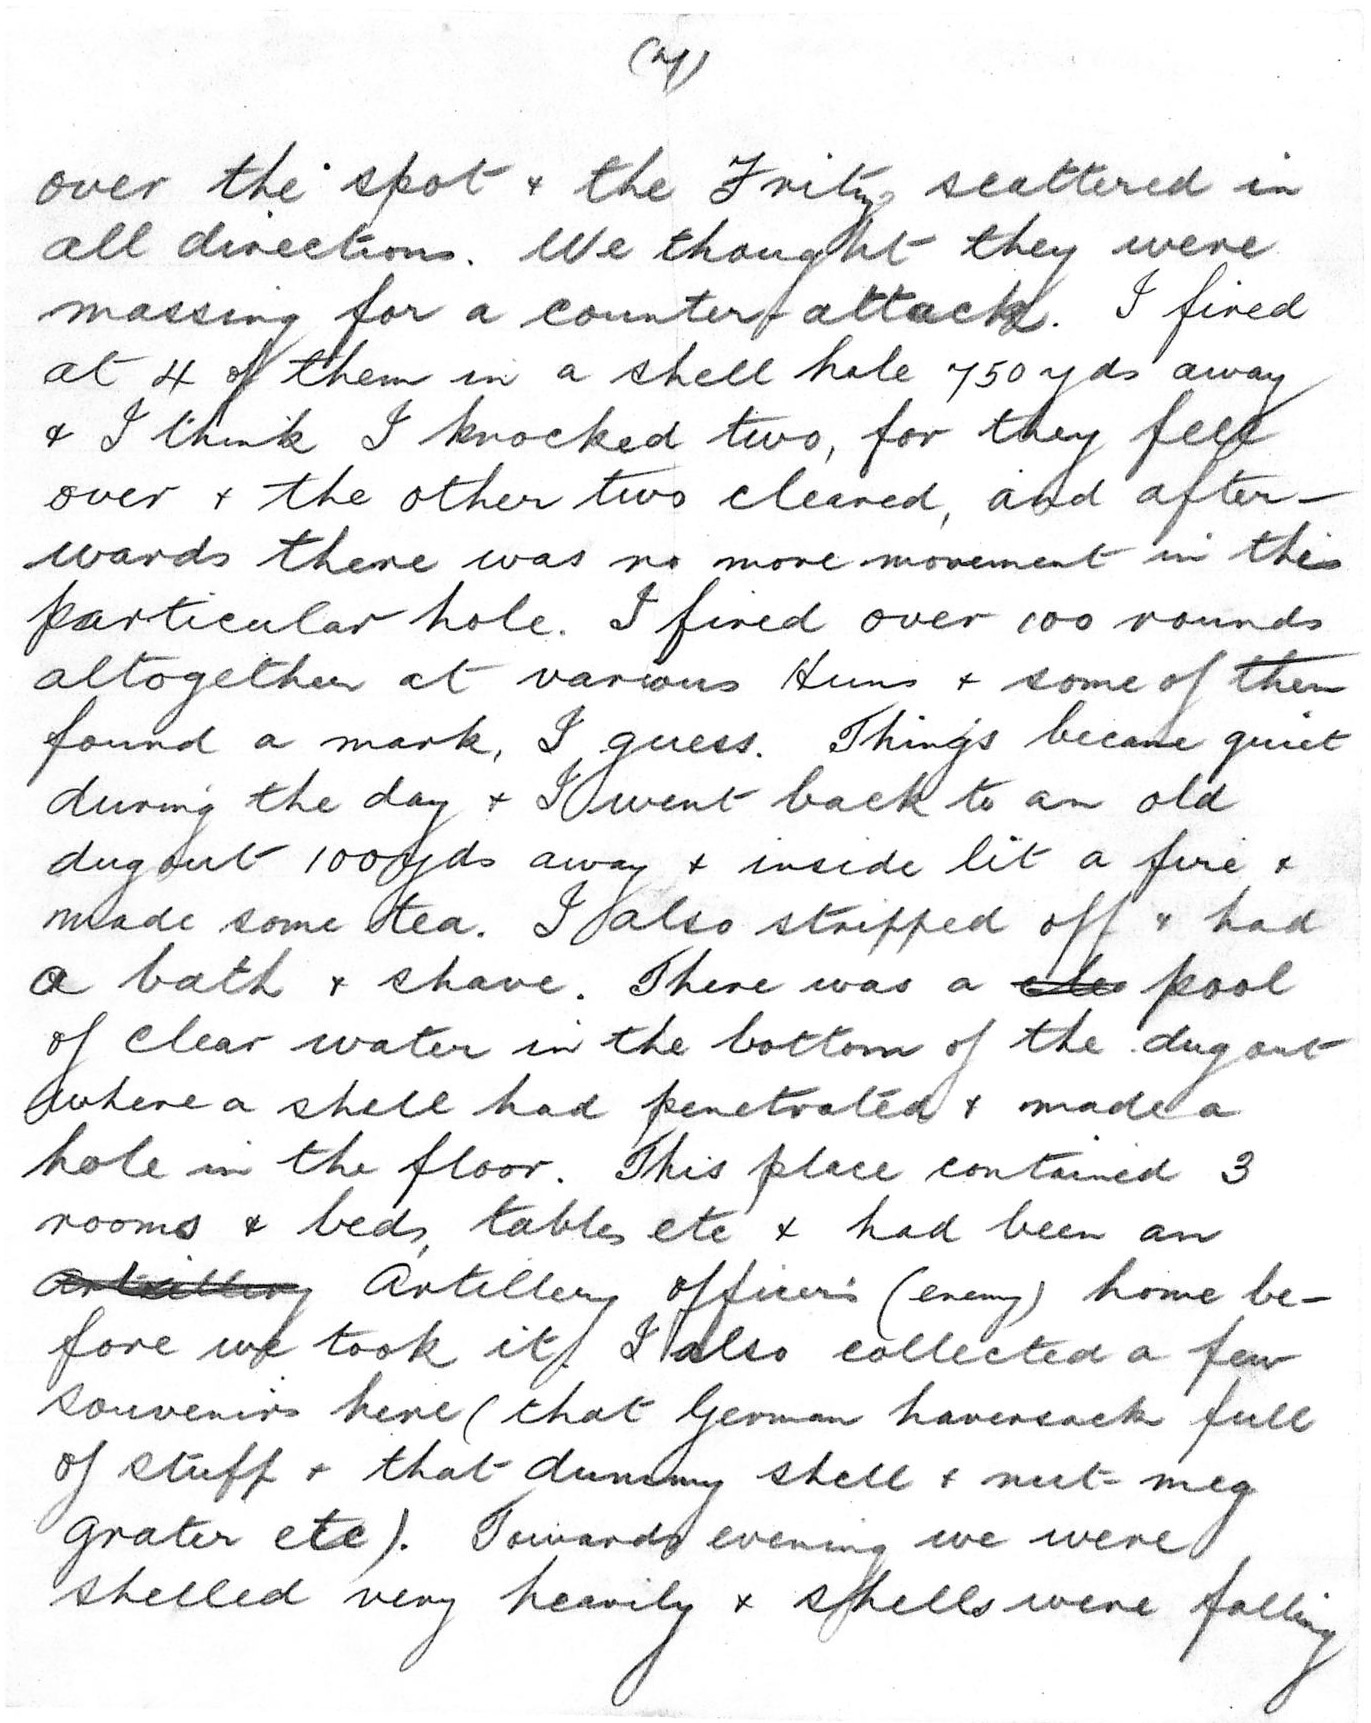 over the spot & the Fritzs scattered in
all directions. We thought they were
massing for a counter-attack. I fired
at 4 of them in a shell hole 750 yds away
& I think I knocked two, for they fell
over & the other two cleared, and after-
wards there was no more movement in this
particular hole. I fired over 100 rounds
altogether at various Huns & some of them
found a mark, I guess. Things became quiet
during the day & I went back to an old
dugout 100 yds away & inside lit a fire &
made some tea. I also stripped off & had
a bath & shave. There was a cle pool
of clear water in the bottom of the dugout
where a shell had penetrated & made a
hole in the floor. This place contained 3
rooms & beds, tables etc & had been an
artillery Artillery officer's (enemy) home be-
fore we took it. I also collected a few
souvenirs here (that German haversack full
of stuff & that dummy shell & nut-meg
grater etc). Towards evening we were
shelled very heavily & shells were falling